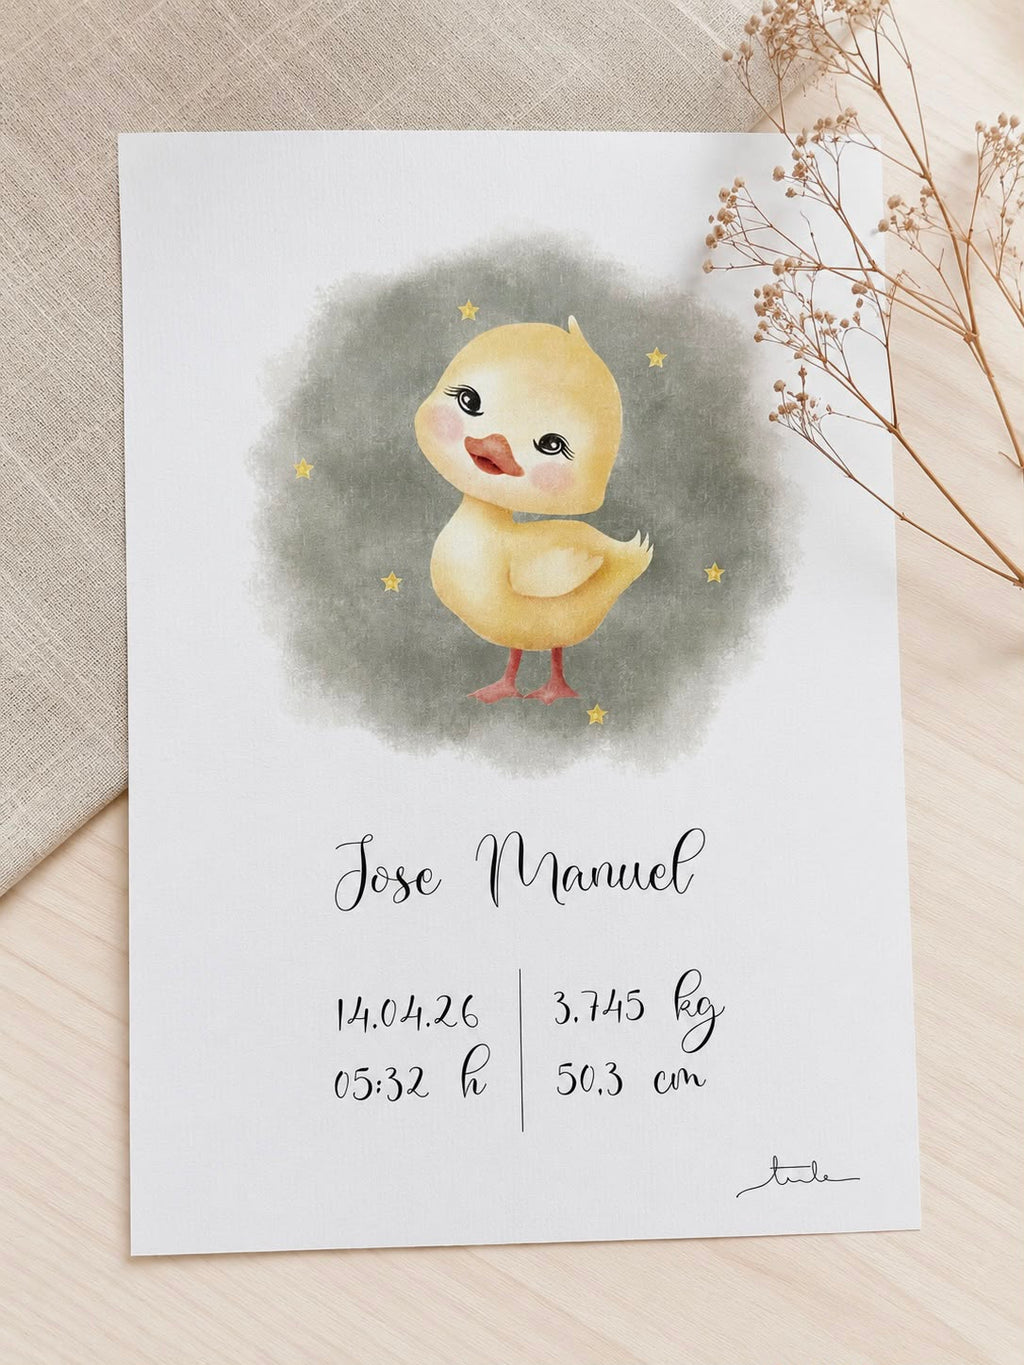 Jose Manuel
14.04.26
05:32 h
3.745 kg
50,3 cm